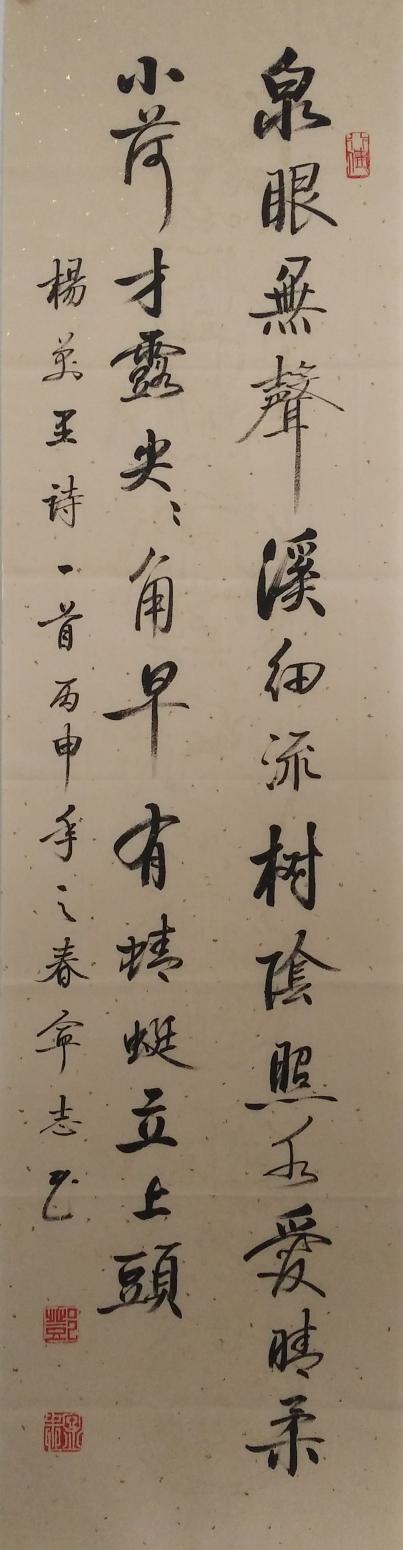 泉眼無聲溪細流树陰照水愛晴柔
小荷才露尖〻角早有蜻蜓立上頭
楊萬里詩一首丙申年之春志書